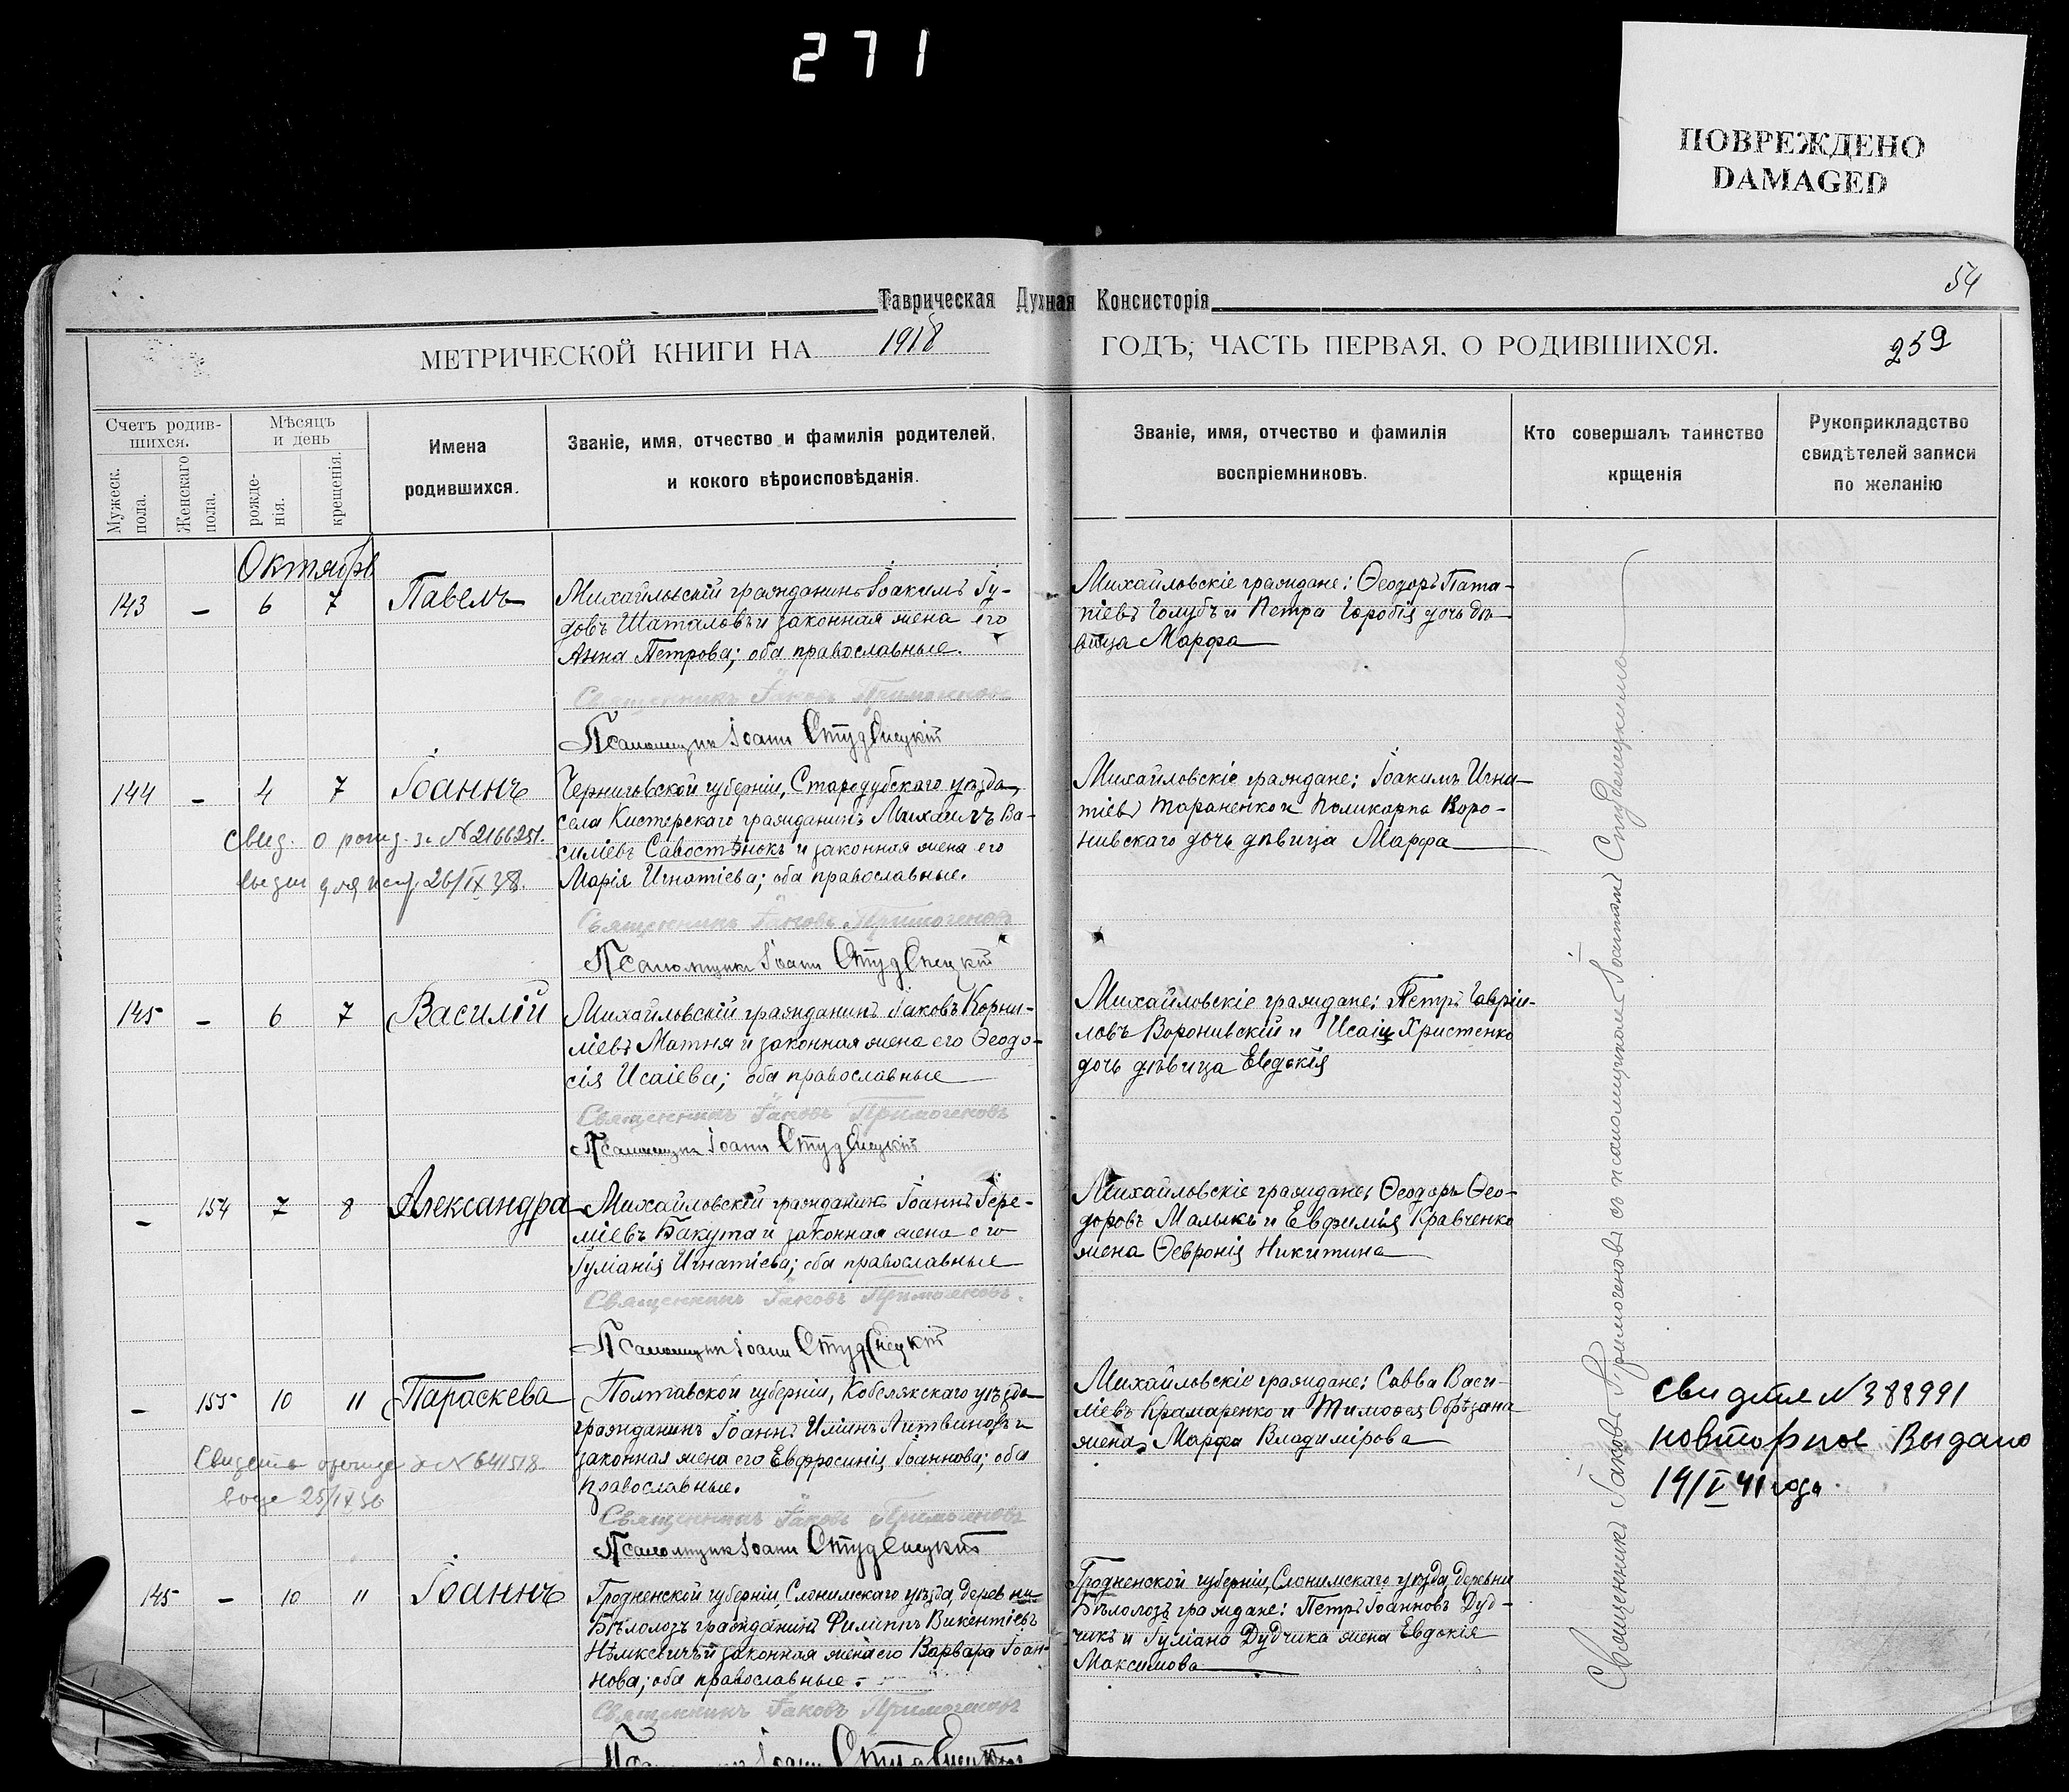 271
ПОВРЕЖДЕНО
DAMAGED
54
Таврическая Духная Консисторія
МЕТРИЧЕСКОЙ КНИГИ НА 1918 ГОДЪ; ЧАСТЬ ПЕРВАЯ. О РОДИВШИХСЯ.
259
Счетъ родив-
шихся.
Мужеск.
пола.
Женскаго
пола.
Мѣсяцъ
и день
рожде-
нія.
крещенія.
Имена
родившихся.
Званіе, имя, отчество и фамилія родителей,
и кокого вѣроисповѣданія.
Званіе, имя, отчество и фамилія
воспріемниковъ.
Кто совершалъ таинство
крщенія
Рукоприкладство
свидѣтелей записи
по желанію
Октябрь
143 – 6 7 Павелъ
Михайловскій гражданинъ Іоакимъ Іу-
довъ Шаталовъ и законная жена его
Анна Петрова; оба православные.
Священникъ Іаковъ Примогеновъ
Псаломщикъ Іоаннъ Студенецкій
Михайловскіе граждане: Ѳеодоръ Пата-
піевъ Голубъ и Петра Горобія дочь дѣ-
вица Марфа
144 – 4 7 Іоаннъ
свид. о рожд. за № 2166251.
26/IX 38.
Черниговской губерніи, Стародубскаго уѣзда,
села Кистерскаго гражданинъ Михаилъ Ва-
силіевъ Савостѣнокъ и законная жена его
Марія Игнатіева; оба православные.
Священникъ Іаковъ Примогеновъ
Псаломщикъ Іоаннъ Студенецкій
Михайловскіе граждане: Іоакимъ Игна-
тіевъ Тараненко и Поликарпа Воро-
нивскаго дочь дѣвица Марфа
145 – 6 7 Василій
Михайловскій гражданинъ Іаковъ Корни-
ліевъ Матня и законная жена его Ѳеодо-
сія Исаіева; оба православные
Священникъ Іаковъ Примогеновъ
Псаломщикъ Іоаннъ Студенецкій
Михайловскіе граждане: Петръ Гавріи-
ловъ Воронивскій и Исаіи Христенко
дочь дѣвица Евдокія
– 154 7 8 Александра
Михайловскій гражданинъ Іоаннъ Іере-
міевъ Бакута и законная жена его
Іуліанія Игнатіева; оба православные
Священникъ Іаковъ Примогеновъ.
Псаломщикъ Іоаннъ Студенецкій
Михайловскіе граждане: Ѳеодоръ Ѳео-
доровъ Малыкъ и Евфимія Кравченко
жена Ѳевронія Никитина
– 155 10 11 Параскева
№ 641518
25/IX 36
Полтавской губерніи, Кобелякскаго уѣзда
гражданинъ Іоаннъ Иліинъ Литвиновъ и
законная жена его Евфросинія Іоаннова; оба
православные.
Священникъ Іаковъ Примогеновъ
Псаломщикъ Іоаннъ Студенецкій
Михайловскіе граждане: Савва Васи-
ліевъ Крамаренко и Тимоѳея Обрѣзана
жена Марфа Владимірова
№ 388991
повторное Выдано
14/V 41 года.
145 – 10 11 Іоаннъ
Гродненской губерніи, Слонимскаго уѣзда, деревни
Бѣлолозъ гражданинъ Филиппъ Викентіевъ
Нѣмкевичъ и законная жена его Варвара Іоан-
нова; оба православные.
Священникъ Іаковъ Примогеновъ
Псаломщикъ Іоаннъ Студенецкій
Гродненской губерніи, Слонимскаго уѣзда, деревни
Бѣлолозъ граждане: Петръ Іоанновъ Дуд-
чикъ и Іуліана Дудчика жена Евдокія
Максимова
Священникъ Іаковъ Примогеновъ съ псаломщикомъ Іоанномъ Студенецкимъ